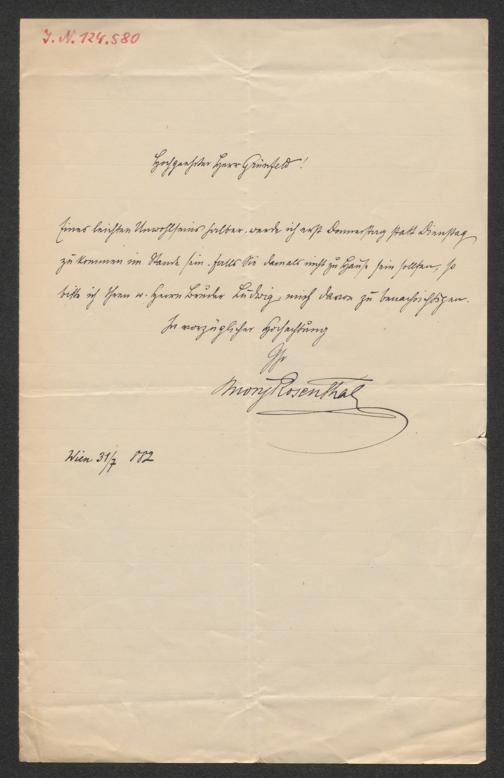 J. N. 124.580
Hochgeehrter Herr Grünfeld!
Eines leichten Unwohlseins halber, werde ich erst Donnerstag statt Dienstag
zu kommen im Stande sein. Falls Sie damals nicht zu Hause sein sollten, so
bitte ich Ihren H. Herrn Bruder Ludwig, mich davon zu benachrichtigen.
In vorzüglicher Hochachtung
Ihr
Moriz Rosenthal
Wien 31/7 882